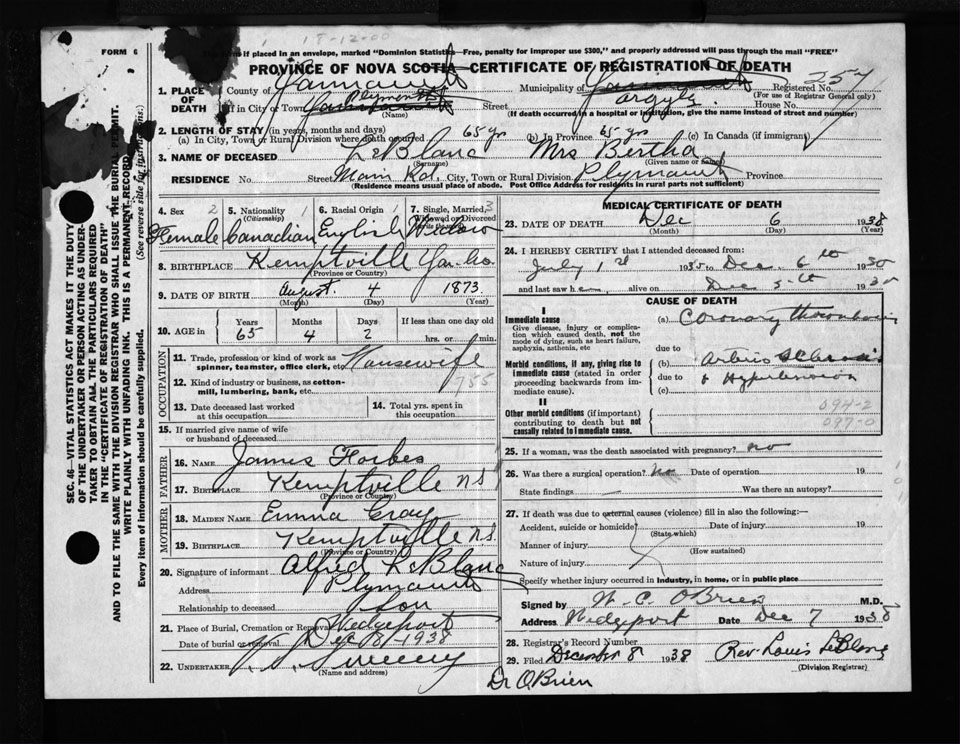 18-12-00
FORM 6
if placed in an envelope, marked "Dominion Statistics—Free, penalty for improper use $300," and properly addressed will pass through the mail "FREE"
PROVINCE OF NOVA SCOTIA—CERTIFICATE OF REGISTRATION OF DEATH
1. PLACE OF DEATH
County of Yarmouth
Municipality of Yarmouth Argyle
Registered No. 257
(For use of Registrar General only)
If in City or Town Plymouth
(Name)
Street
House No.
(If death occurred in a hospital or institution, give the name instead of street and number)
2. LENGTH OF STAY (in years, months and days)
(a) In City, Town or Rural Division where death occurred 65 yrs (b) In Province 65 yrs (c) In Canada (if immigrant)
3. NAME OF DECEASED LeBlanc Mrs Bertha
(Surname) (Given name or names)
RESIDENCE No. Street Main Rd. City, Town or Rural Division Plymouth Province
(Residence means usual place of abode. Post Office Address for residents in rural parts not sufficient)
4. Sex 2 Female
5. Nationality 1 (Citizenship) Canadian
6. Racial Origin 1 English
7. Single, Married, 3 Widowed or Divorced Widow
8. BIRTHPLACE Kemptville Yar. Co.
(Province or Country)
9. DATE OF BIRTH August 4 1873
(Month) (Day) (Year)
10. AGE in Years Months Days If less than one day old
65 4 2 hrs. or min.
OCCUPATION
11. Trade, profession or kind of work as spinner, teamster, office clerk, etc. Housewife
12. Kind of industry or business, as cotton-mill, lumbering, bank, etc. 755
13. Date deceased last worked at this occupation
14. Total yrs. spent in this occupation
15. If married give name of wife or husband of deceased
FATHER
16. NAME James Forbes
17. BIRTHPLACE Kemptville N S
(Province or Country)
MOTHER
18. MAIDEN NAME Emma Gray
19. BIRTHPLACE Kemptville N.S.
(Province or Country)
20. Signature of informant Alfred LeBlanc
Address Plymouth
Relationship to deceased Son
21. Place of Burial, Cremation or Removal Wedgeport
Date of burial or removal Dec 8-1938
22. UNDERTAKER Sweeny
(Name and address)
MEDICAL CERTIFICATE OF DEATH
23. DATE OF DEATH Dec 6 1938
(Month) (Day) (Year)
24. I HEREBY CERTIFY that I attended deceased from:
July 1 1935 to Dec. 6th 19
and last saw h alive on Dec 5th 19
CAUSE OF DEATH
I
Immediate cause
Give disease, injury or complication which caused death, not the mode of dying, such as heart failure, asphyxia, asthenia, etc
(a) Coronary thrombosis
due to
Morbid conditions, if any, giving rise to immediate cause (stated in order proceeding backwards from immediate cause).
(b) Arterio Sclerosis
due to & Hypertension
(c)
II
Other morbid conditions (if important) contributing to death but not causally related to immediate cause.
094-2
097-0
25. If a woman, was the death associated with pregnancy? no
26. Was there a surgical operation? No Date of operation 19
State findings — Was there an autopsy?
27. If death was due to external causes (violence) fill in also the following:—
Accident, suicide or homicide? Date of injury 19
(State which)
Manner of injury
(How sustained)
Nature of injury
Specify whether injury occurred in industry, in home, or in public place
Signed by W. C. O'Brien M.D.
Address Wedgeport Date Dec 7 1938
28. Registrar's Record Number
29. Filed December 8 1938 Rev. Louis LeBlanc
(Division Registrar)
Dr O'Brien
SEC. 46—VITAL STATISTICS ACT MAKES IT THE DUTY
OF THE UNDERTAKER OR PERSON ACTING AS UNDER-
TAKER TO OBTAIN ALL THE PARTICULARS REQUIRED
IN THE "CERTIFICATE OF REGISTRATION OF DEATH"
AND TO FILE THE SAME WITH THE DIVISION REGISTRAR WHO SHALL ISSUE THE BURIAL PERMIT.
WRITE PLAINLY WITH UNFADING INK. THIS IS A PERMANENT RECORD.
Every item of information should be carefully supplied. (See reverse side for instructions.)